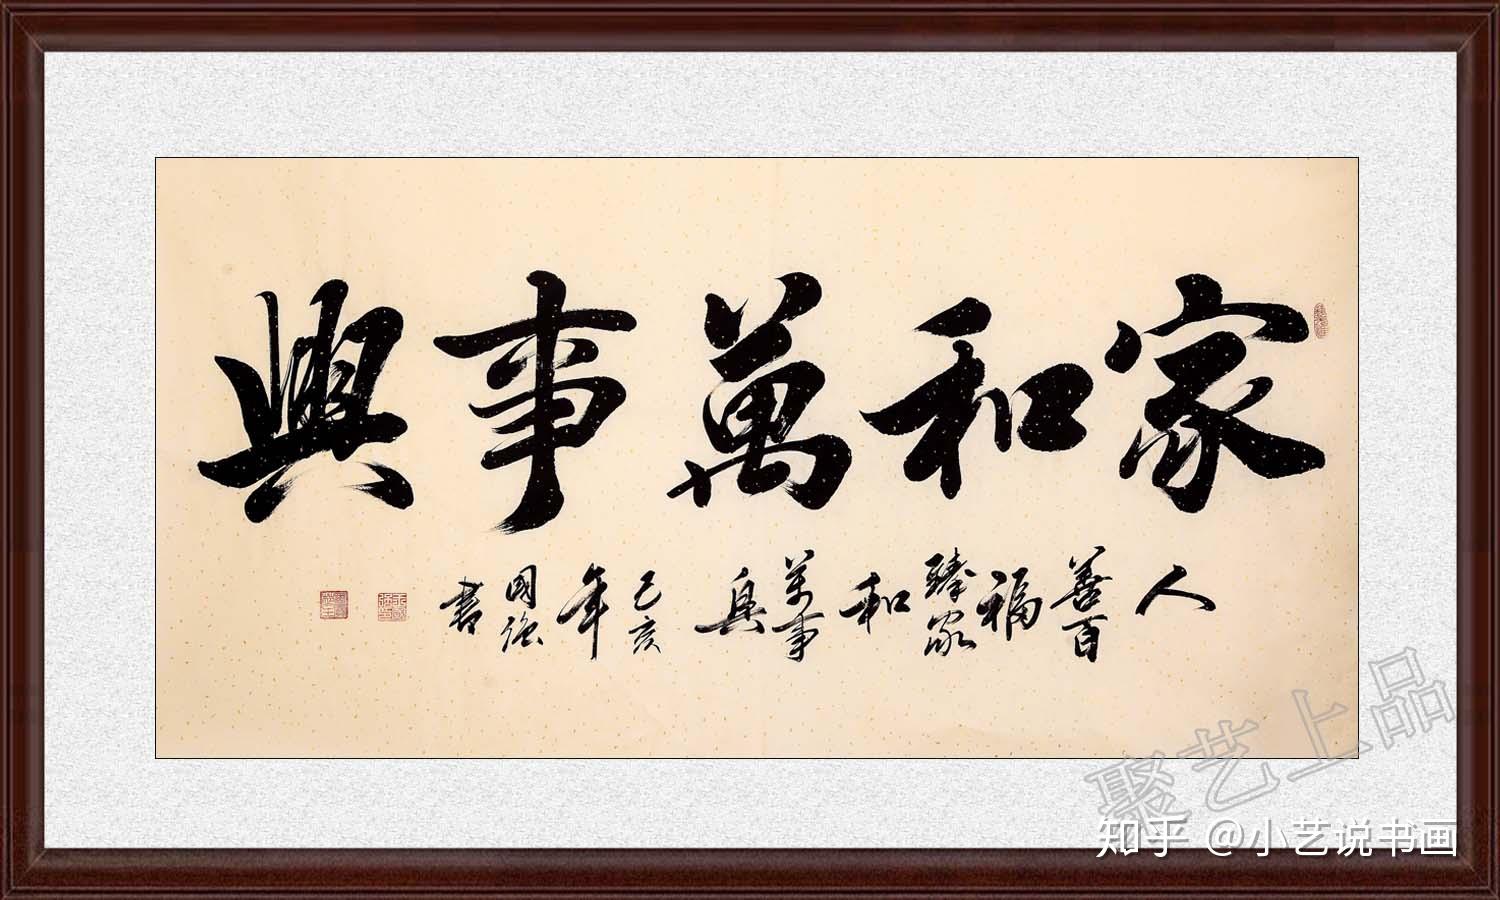 家和萬事興
人善百福臻家和萬事興己亥年國強書
聚艺上品
知乎 @小艺说书画